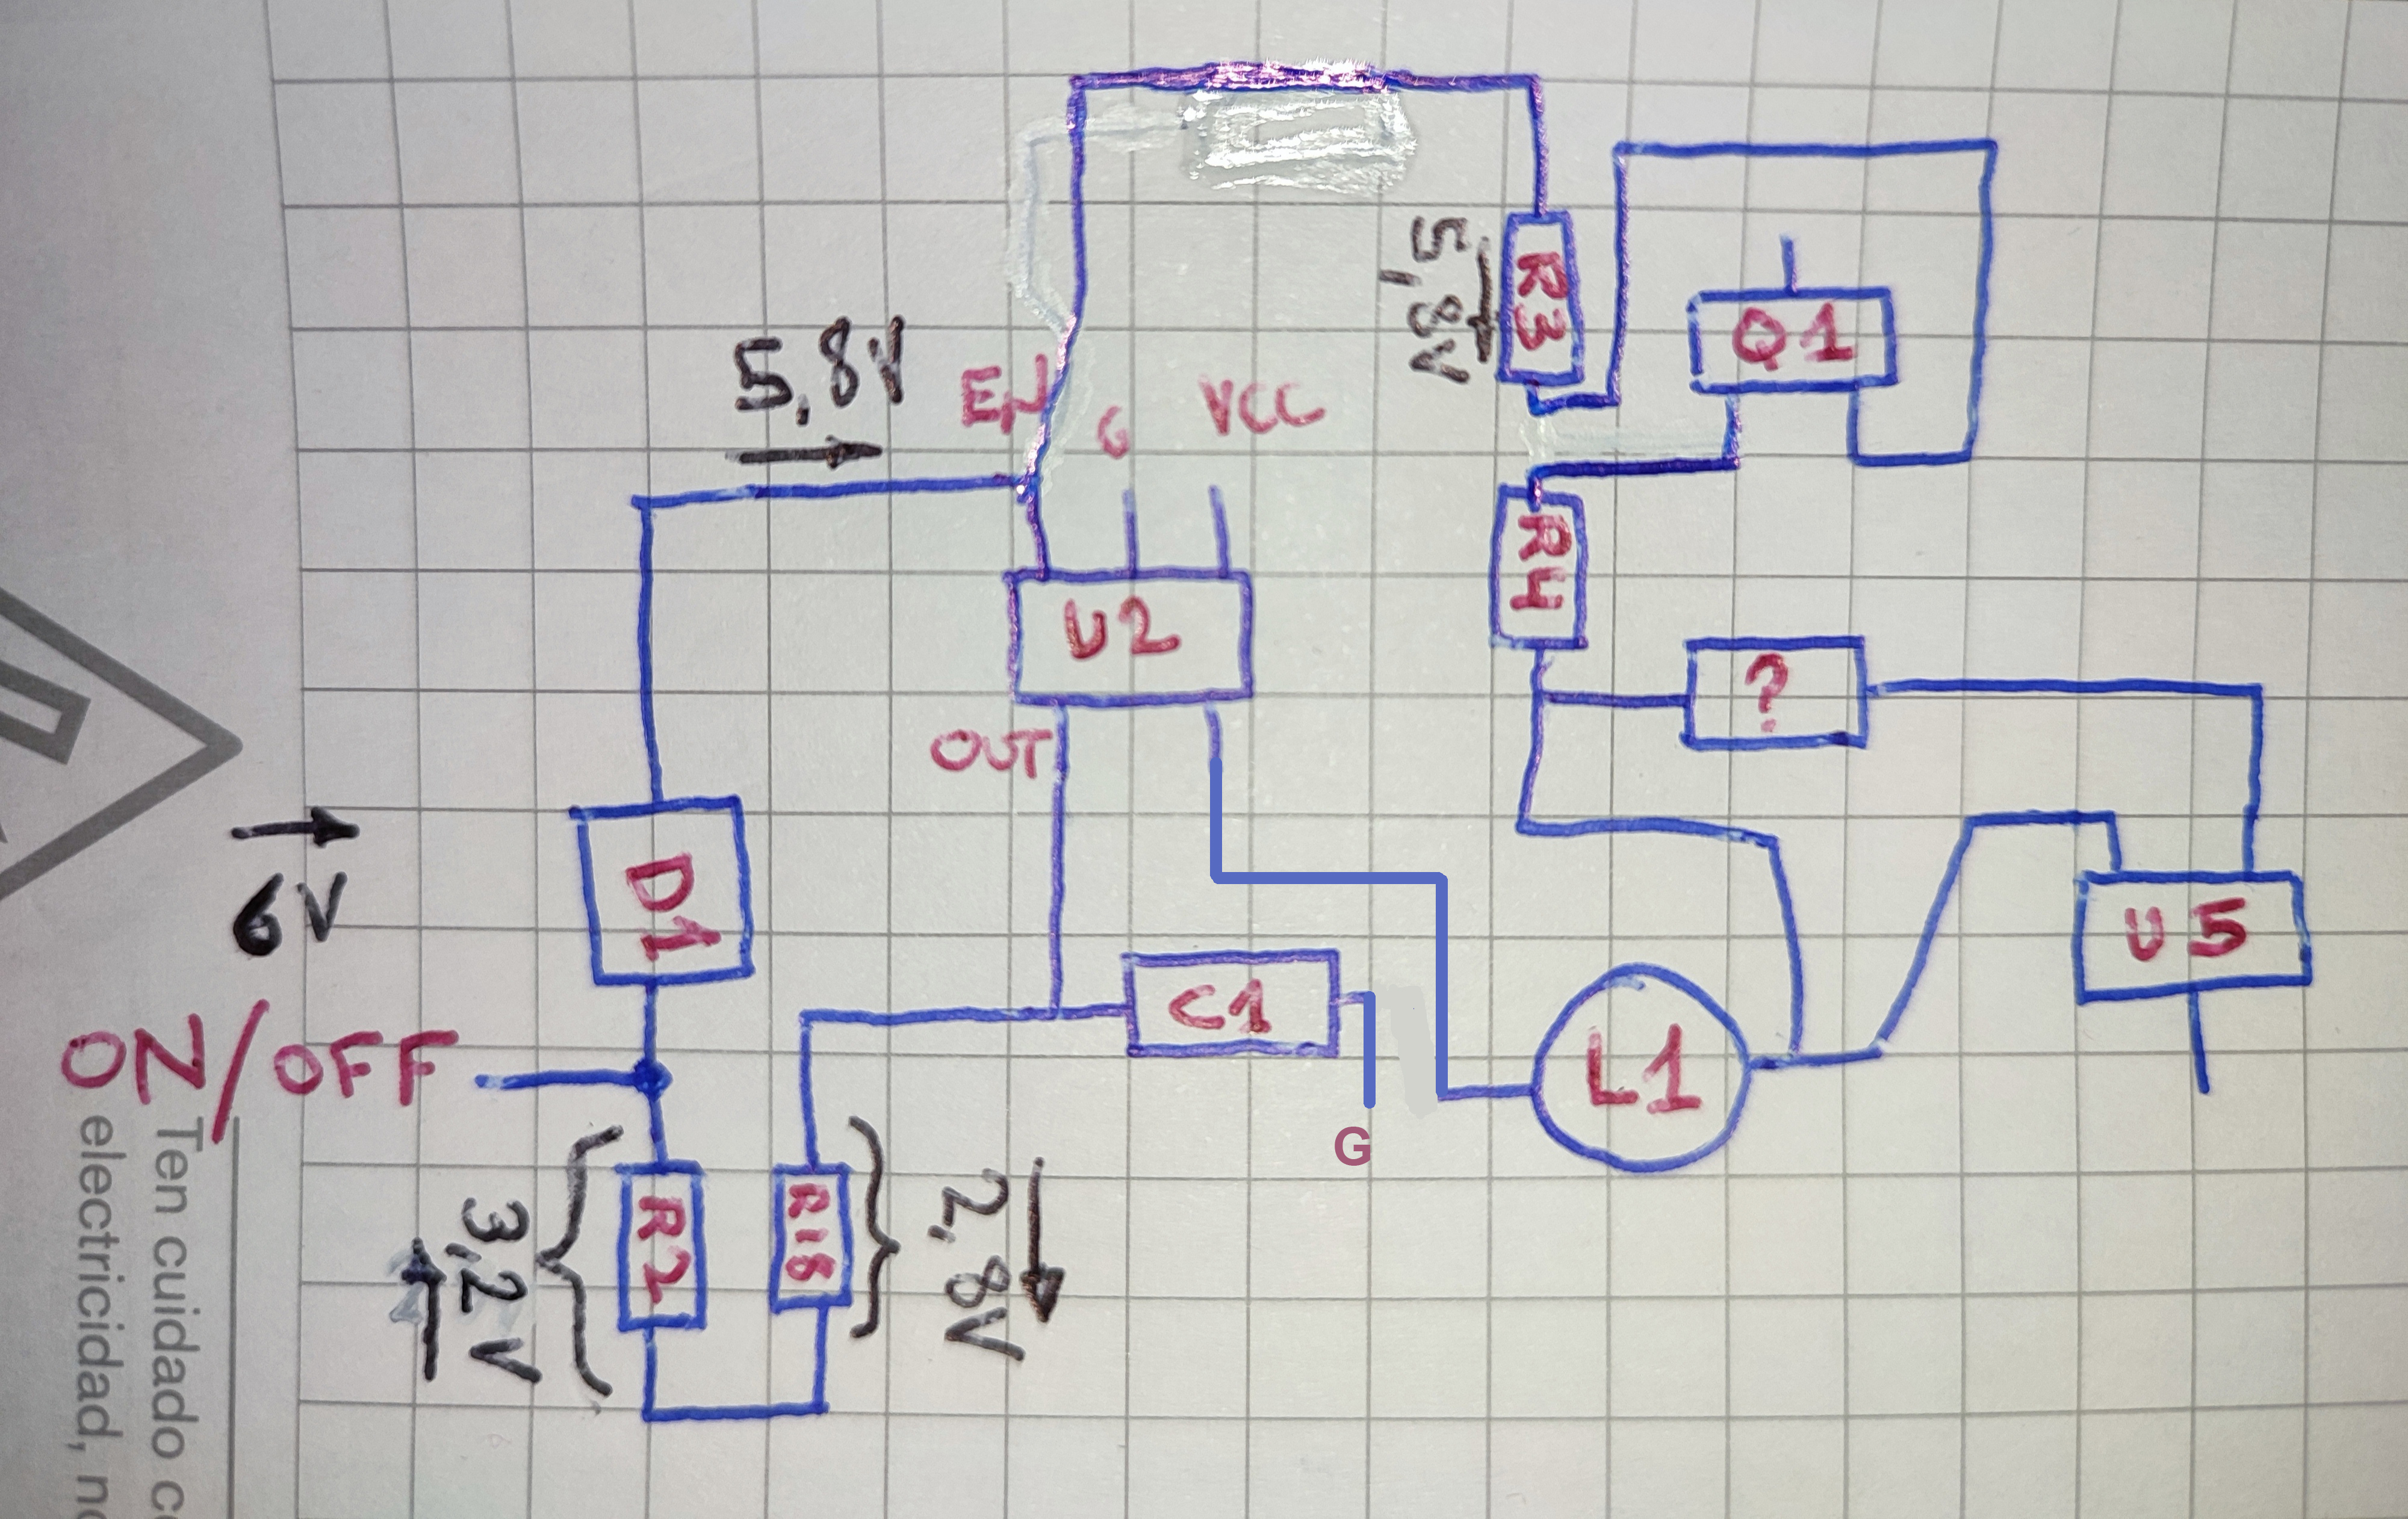 5,8V
EN
G
VCC
5,8V
R3
Q1
R4
U2
?
OUT
6V
D1
U5
C1
L1
ON/OFF
G
R2
R18
3,2V
2,8V
Ten cuidado c
electricidad, no